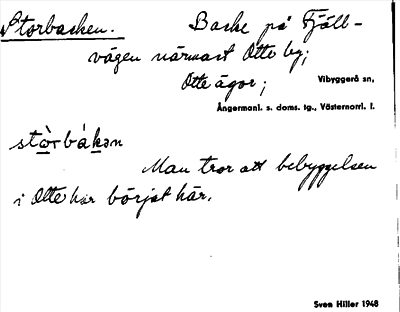 Storbacken. Backe på Fjäll-
vägen närmast Otte by;
Otte ägor; Vibyggerå sn,
Ångermanl. s. doms. tg., Västernorrl. l.
stòrbákən
Man tror att bebyggelsen
i Otte har börjat här.
Sven Hiller 1948